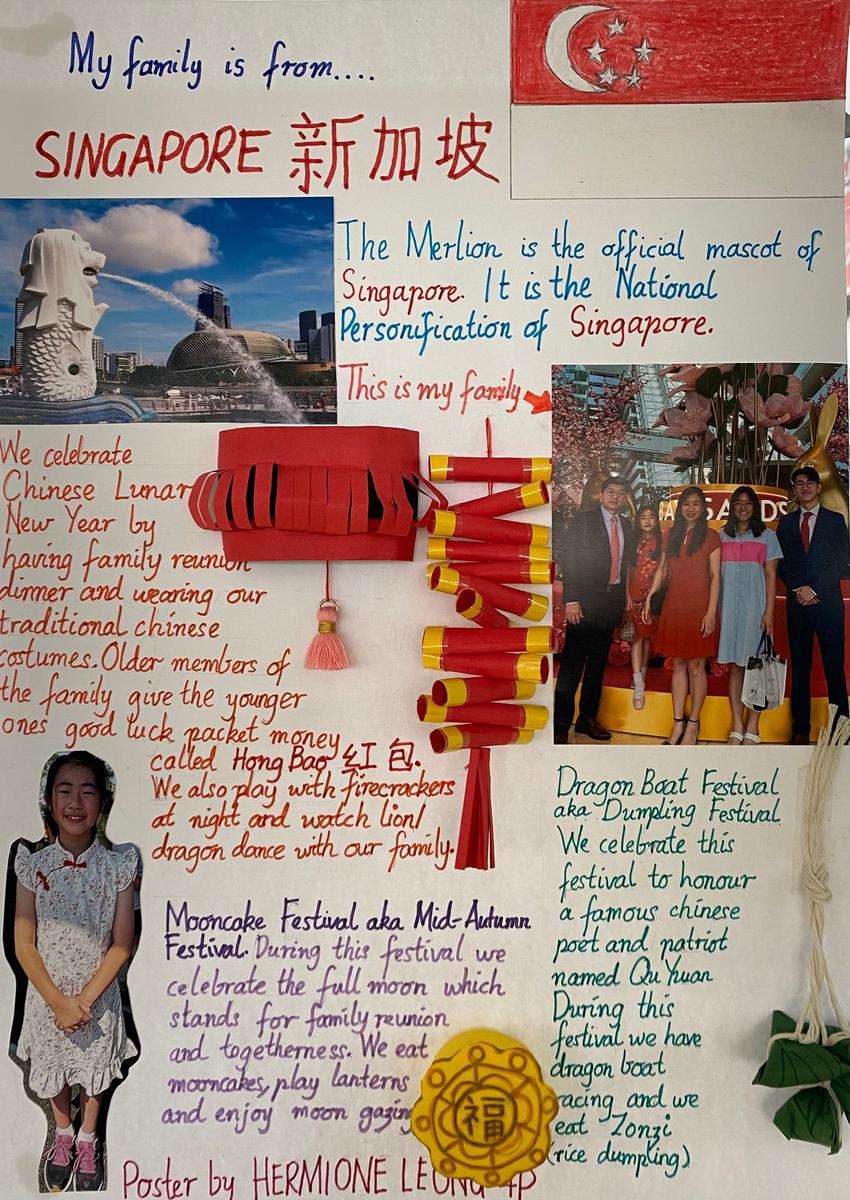 My family is from....
SINGAPORE 新加坡
The Merlion is the official mascot of
Singapore. It is the National
Personification of Singapore.
This is my family
We celebrate
Chinese Lunar
New Year by
having family reunion
dinner and wearing our
traditional chinese
costumes. Older members of
the family give the younger
ones good luck packet money
called Hong Bao 红包.
We also play with firecrackers
at night and watch lion/
dragon dance with our family.
Mooncake Festival aka Mid-Autumn
Festival. During this festival we
celebrate the full moon which
stands for family reunion
and togetherness. We eat
mooncakes, play lanterns
and enjoy moon gazing
福
Dragon Boat Festival
aka Dumpling Festival
We celebrate this
festival to honour
a famous chinese
poet and patriot
named Qu Yuan
During this
festival we have
dragon boat
racing and we
eat Zonzi
(rice dumpling)
Poster by HERMIONE LEONG 4P